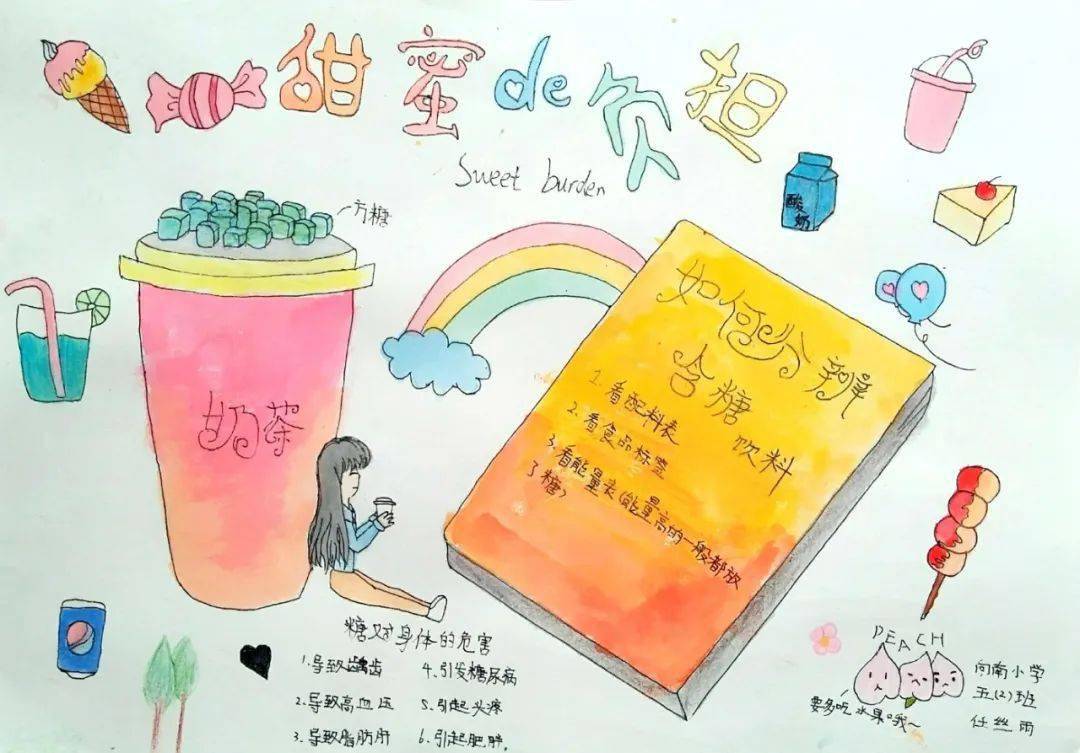 甜蜜de负担
Sweet burden
方糖
酸奶
奶茶
如何分辨
含糖饮料
1.看配料表
2.看食品标签
3.看能量表(能量高的一般都放
了糖)
糖对身体的危害
1.导致龋齿
2.导致高血压
3.导致脂肪肝
4.引发糖尿病
5.引起头疼
6.引起肥胖.
PEACH
要多吃水果哦~
小学
五(2)班
任丝雨